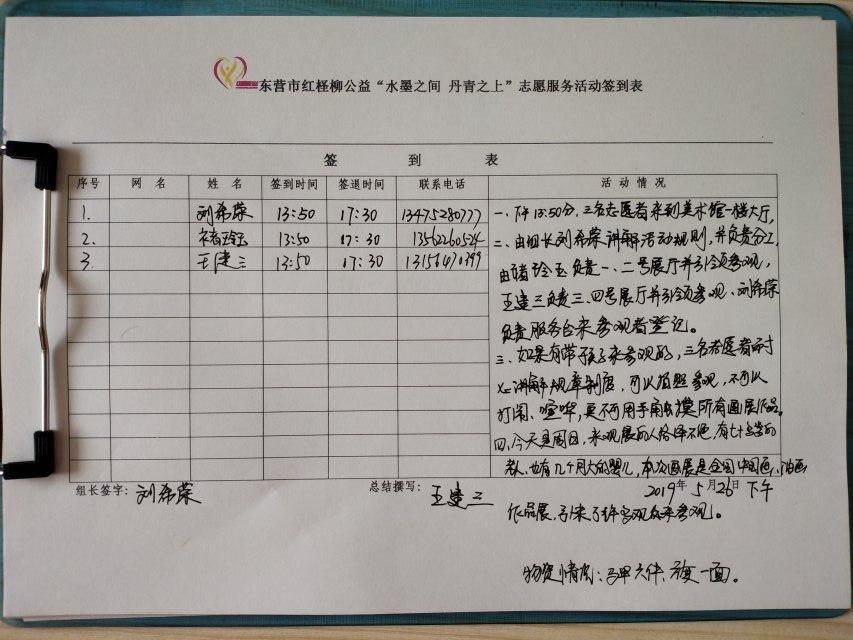 东营市红柽柳公益“水墨之间 丹青之上”志愿服务活动签到表
签 到 表
序号 网 名 姓 名 签到时间 签退时间 联系电话 活 动 情 况
1. 刘希荣 13:50 17:30 13475280777
2. 褚玲玉 13:50 17:30 13562260524
3. 王建三 13:50 17:30 13156471399
一、下午13:50分,三名志愿者来到美术馆一楼大厅,
二、由组长刘希荣讲解活动规则,并负责分工,
由褚玲玉负责一、二号展厅并引领参观,
王建三负责三、四号展厅并引领参观、刘希荣
负责服务台来参观者登记。
三、如果有带孩子来参观的,三名志愿者应对
讲解规章制度,可以拍照参观,不可以
打闹、喧哗,更不可用手触摸所有画展作品。
四、今天是周日,来观展的人络绎不绝,有七十多岁的
老人,也有几个月大的婴儿,本次画展是全国中国画、油画
作品展,引来了许多观众来参观。
组长签字:刘希荣 总结撰写:王建三 2019年5月26日下午
物资情况:马甲六件、旗一面。